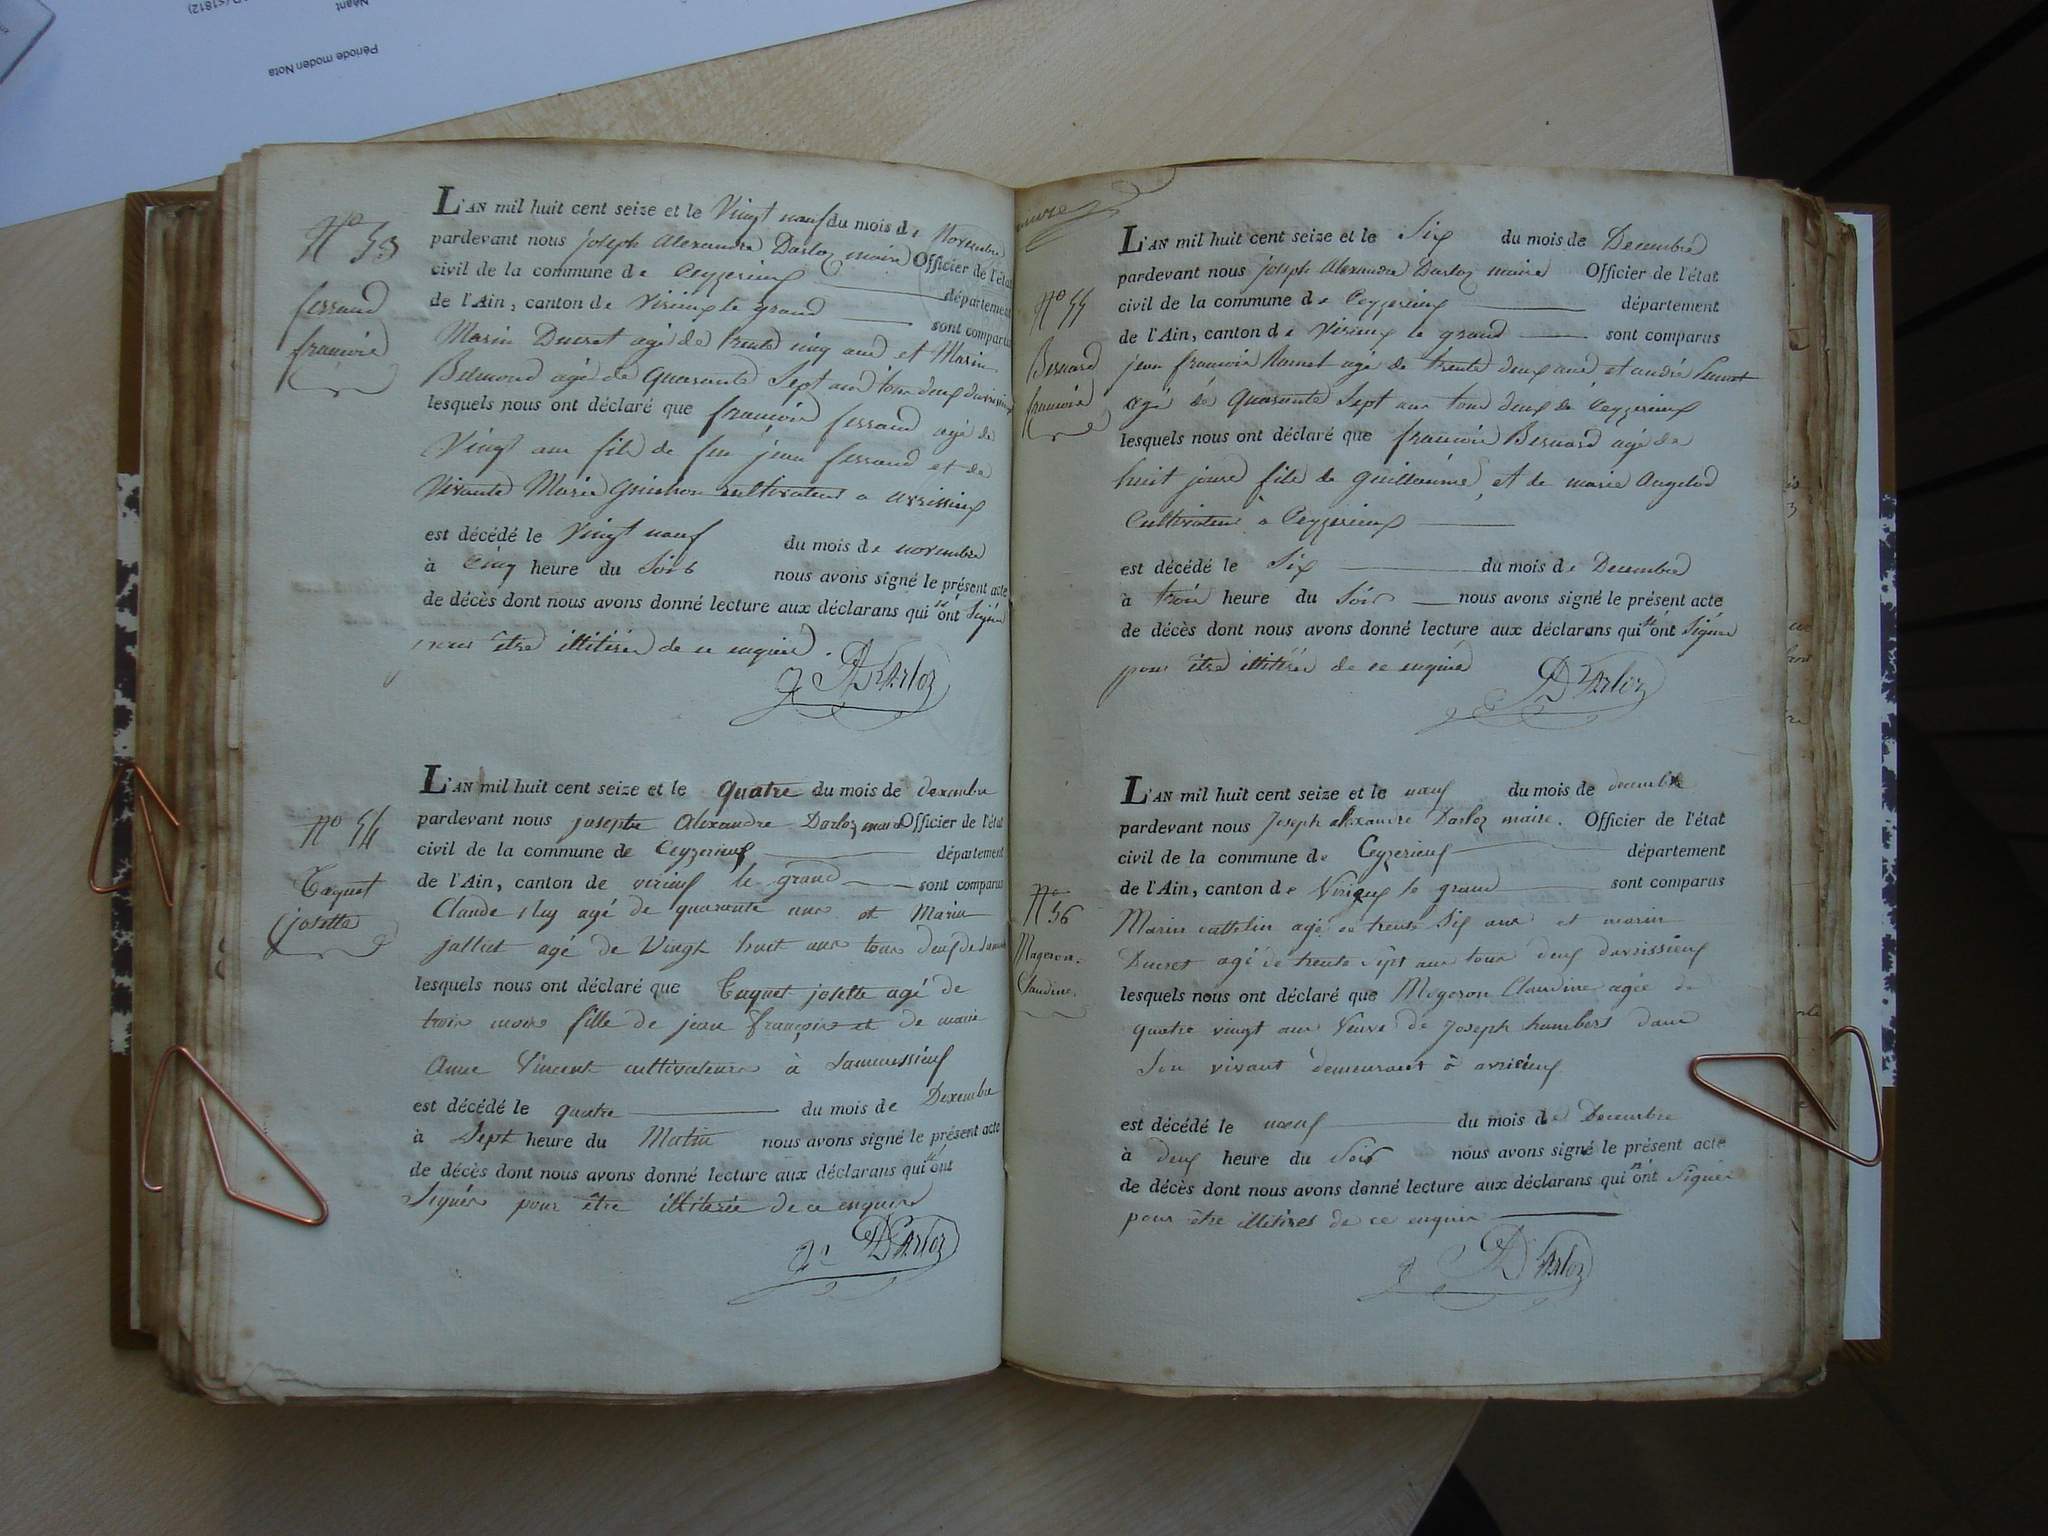 Période moden Nota
Néant
Nº 53
ferrand
francois
L'AN mil huit cent seize et le Vingt neuf du mois de Novembre
pardevant nous joseph Alexandre Darloz maire Officier de l'état
civil de la commune de Ceyzerieux département
de l'Ain, canton de Virieux le grand sont comparus
Marin Ducret agé de trente cinq ans et Marin
agé de Quarante Sept ans tous deux
lesquels nous ont déclaré que francois ferrand agé de
Vingt ans fils de feu jean ferrand et de
Vivante Marie cultivateur a avrissieux
est décédé le Vingt neuf du mois de novembre
à Cinq heure du Soir nous avons signé le présent acte
de décès dont nous avons donné lecture aux déclarans qui n'ont Signés
pour être illitérés de ce enquis.
J A Darloz
Nº 54
Taquet
josette
L'AN mil huit cent seize et le Quatre du mois de Dexembre
pardevant nous josepte Alexandre Darloz maire Officier de l'état
civil de la commune de Ceyzerieux département
de l'Ain, canton de virieux le grand sont comparus
Claude agé de quarante ans et Marin
jallut agé de Vingt huit ans tous deux de
lesquels nous ont déclaré que Taquet josette agé de
trois mois fille de jean françois et de marie
Anne Vincent cultivateurs à
est décédé le quatre du mois de Dexembre
à Sept heure du Matin nous avons signé le présent acte
de décès dont nous avons donné lecture aux déclarans qui n'ont
Signés pour être illiterée de ce enquis
J A Darloz
Nº 55
Bernard
francois
L'AN mil huit cent seize et le Six du mois de Decembre
pardevant nous joseph Alexandre Darloz maire Officier de l'état
civil de la commune de Ceyzerieux département
de l'Ain, canton de Virieux le grand sont comparus
jean francois agé de trente deux ans et andré
agé de Quarante Sept ans tous deux de Ceyzerieux
lesquels nous ont déclaré que francois Bernard agé de
huit jours fils de Guillaume et de marie
Cultivateur a Ceyzerieux
est décédé le Six du mois de Decembre
à trois heure du Soir nous avons signé le présent acte
de décès dont nous avons donné lecture aux déclarans qui n'ont Signés
pour être illitérés de ce enquis
J A Darloz
Nº 56
Mageron.
Claudine.
L'AN mil huit cent seize et le neuf du mois de decembre
pardevant nous Joseph alexandre Darloz maire. Officier de l'état
civil de la commune de Ceyzerieux département
de l'Ain, canton de Virieux le grand sont comparus
Marin cattelin agé de trente Six ans et marin
Ducret agé de trente sept ans tous deux davrissieux
lesquels nous ont déclaré que Mogeron Claudine agée de
quatre vingt ans Veuve de Joseph humbert dans
Son vivant demeurant à avrisieux
est décédé le neuf du mois de Decembre
à deux heure du Soir nous avons signé le présent acte
de décès dont nous avons donné lecture aux déclarans qui n'ont Signés
pour être illitires de ce enquis
J A Darloz